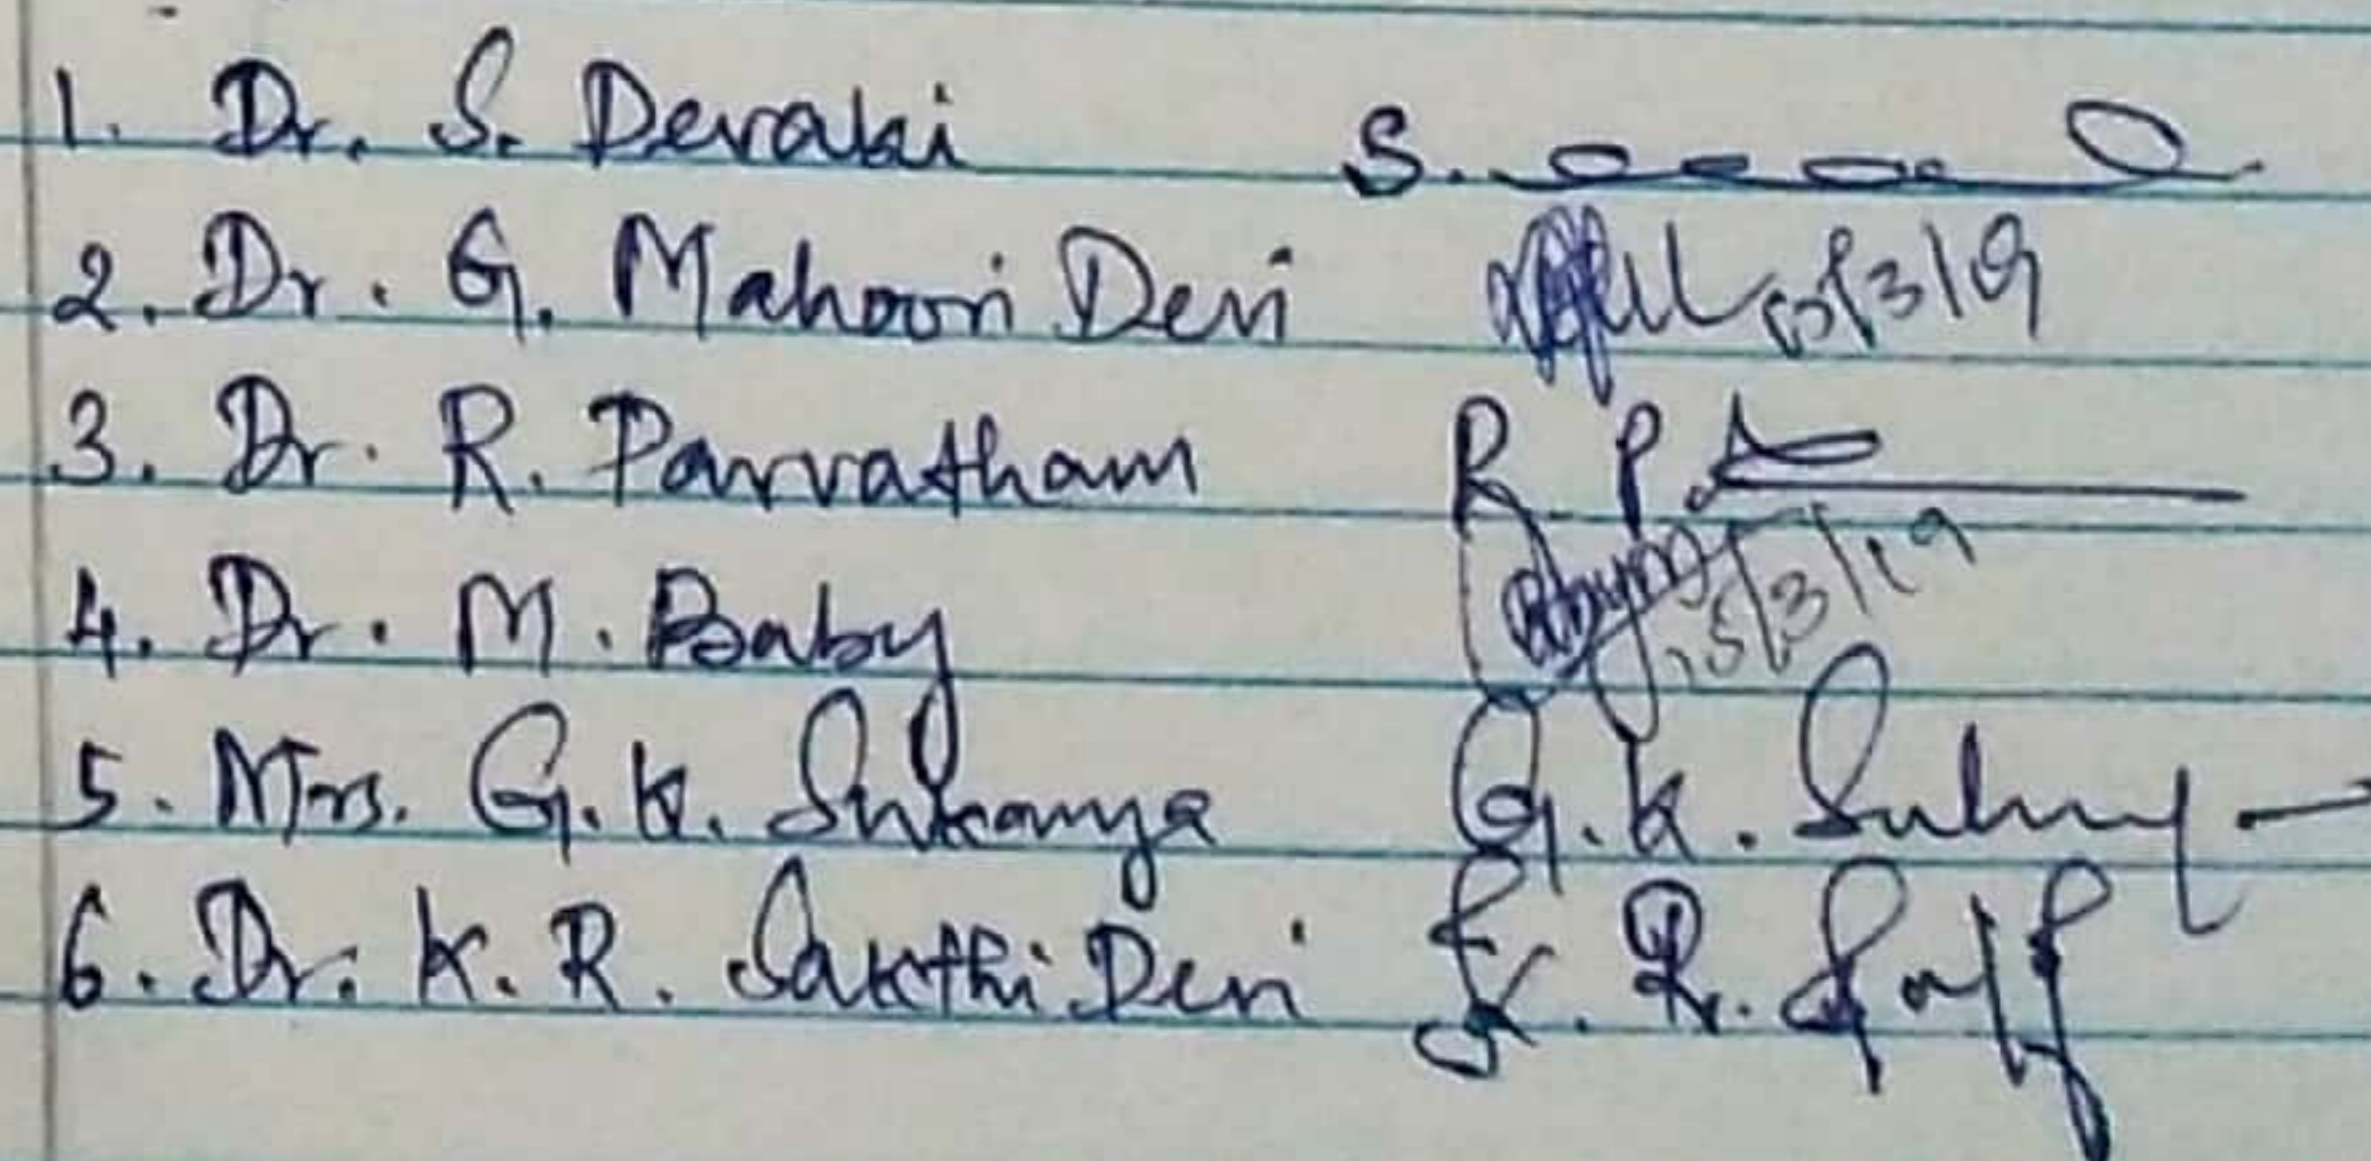 1. Dr. S. Devaki S.
2. Dr. G. Mahoori Devi
3. Dr. R. Parvatham R P
4. Dr. M. Baby 15/3/19
5. Mrs. G. K. Sukanya G. K.
6. Dr. K. R. Sakthi Devi K. R.